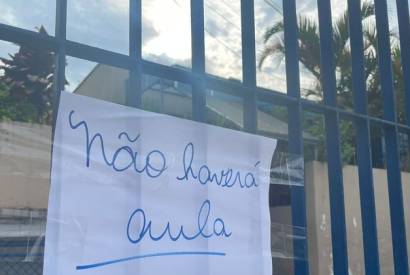 Não haverá
aula